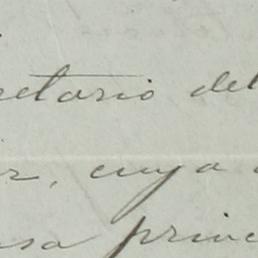 retario del
r, cuya
sa princ